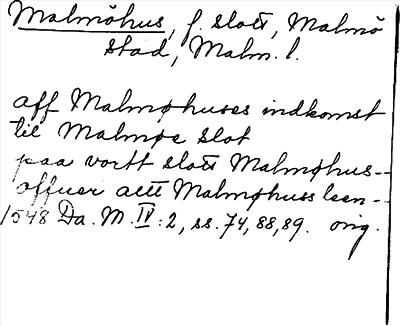 Malmöhus, f. slott, Malmö
stad, Malm. l.
aff Malmøhuses indkomst
til Malmøe slot
paa vortt slott Malmøhus--
offuer altt Malmøhuss leen--
1548 Da. M. IV:2, ss. 74, 88, 89. orig.